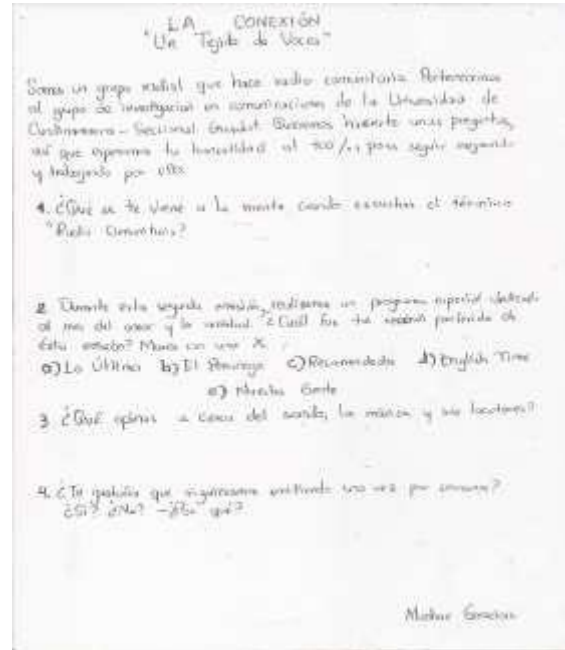 LA CONEXIÓN
"Un Tejido de Voces"
Somos un grupo radial que hace radio comunitaria. Pertenecemos
al grupo de investigación en comunicaciones de la Universidad de
Cundinamarca - Seccional Girardot. Queremos hacerte unas preguntas,
así que esperamos tu honestidad al 100% para seguir mejorando
y trabajando por ello.
1. ¿Qué se te viene a la mente cuando escuchas el término
"Radio Comunitaria?
2. Durante esta segunda emisión, realizamos un programa especial dedicado
al mes del amor y la amistad. ¿Cuál fue tu sección preferida de
esta emisión? Marca con una X.
a) Lo Último b) El Personaje c) Recomendados d) English Time
e) Nuestra Gente
3. ¿Qué opinas a cerca del sonido, la música y los locutores?
4. ¿Te gustaría que siguiéramos emitiendo una vez por semana?
¿Sí? ¿No? - ¿Por qué?
Muchas Gracias